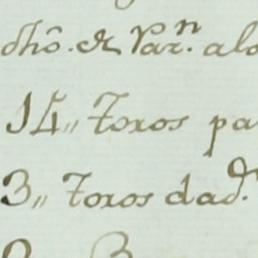 dhô. & Var.ⁿ alo
14,, Toros pa
3,, Toros dad.ˢ